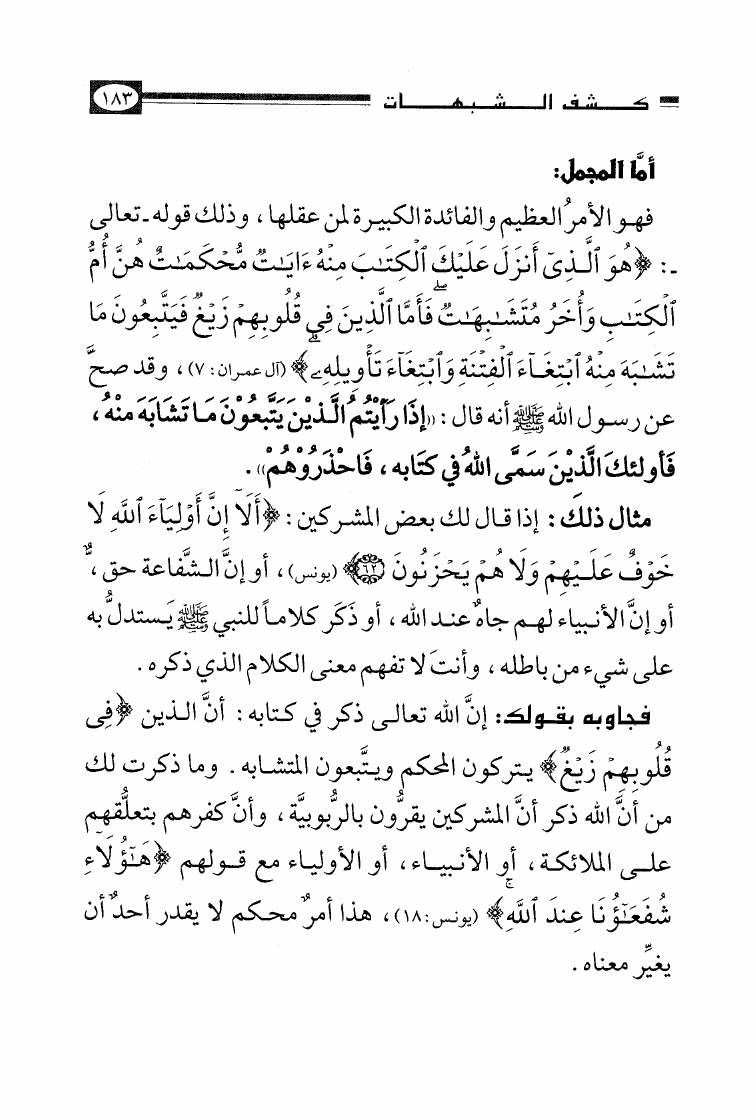 كشف الشبهات ١٨٣
أمَّا المجمل:
فهو الأمرُ العظيم والفائدة الكبيرة لمن عقلها، وذلك قوله ـ تعالى
ـ: ﴿هُوَ ٱلَّذِىٓ أَنزَلَ عَلَيْكَ ٱلْكِتَـٰبَ مِنْهُ ءَايَـٰتٌ مُّحْكَمَـٰتٌ هُنَّ أُمُّ
ٱلْكِتَـٰبِ وَأُخَرُ مُتَشَـٰبِهَـٰتٌ ۖ فَأَمَّا ٱلَّذِينَ فِى قُلُوبِهِمْ زَيْغٌ فَيَتَّبِعُونَ مَا
تَشَـٰبَهَ مِنْهُ ٱبْتِغَآءَ ٱلْفِتْنَةِ وَٱبْتِغَآءَ تَأْوِيلِهِۦ ۗ﴾ (آل عمران: ٧)، وقد صحَّ
عن رسول الله ﷺ أنه قال: ((إِذَا رَأَيْتُمُ الَّذِيْنَ يَتَّبِعُوْنَ مَا تَشَابَهَ مِنْهُ،
فَأُولئكَ الَّذِيْنَ سَمَّى اللهُ في كتَابه، فَاحْذَرُوْهُمْ)).
مثال ذلكَ: إذا قال لك بعض المشركين: ﴿أَلَآ إِنَّ أَوْلِيَآءَ ٱللَّهِ لَا
خَوْفٌ عَلَيْهِمْ وَلَا هُمْ يَحْزَنُونَ ٦٢﴾ (يونس)، أو إنَّ الشَّفاعة حق،
أو إنَّ الأنبياء لهم جاهٌ عند الله، أو ذَكَر كلاماً للنبي ﷺ يَستدلُّ به
على شيء من باطله، وأنتَ لا تفهم معنى الكلام الذي ذكره.
فجاوبه بقولك: إنَّ الله تعالى ذكر في كتابه: أنَّ الذين ﴿فِى
قُلُوبِهِمْ زَيْغٌ﴾ يتركون المحكم ويتَّبعون المتشابه. وما ذكرت لك
من أنَّ الله ذكر أنَّ المشركين يقرُّون بالرُّبوبيَّة، وأنَّ كفرهم بتعلُّقهم
على الملائكة، أو الأنبياء، أو الأولياء مع قولهم ﴿هَـٰٓؤُلَآءِ
شُفَعَـٰٓؤُنَا عِندَ ٱللَّهِ ۚ﴾ (يونس: ١٨)، هذا أمرٌ محكم لا يقدر أحدٌ أن
يغيِّر معناه.